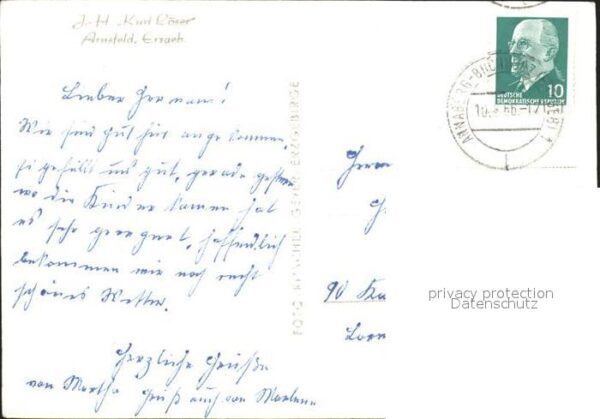 J.-H. "Kurt Löser"
Arnsfeld, Erzgeb.
Lieber Herman!
Wir sind gut hier angekommen,
es gefällt uns gut, gerade gestern
wo die Kinder kamen hat
es sehr geregnet, hoffentlich
bekommen wir noch recht
schönes Wetter.
Herzliche Grüße
von Martha Gruß auch von Marlene
FOTO
GEYER ERZGEBIRGE
DEUTSCHE
DEMOKRATISCHE REPUBLIK
10
ANNABERG-BUCHHOLZ
Herrn
90 Ka
privacy protection
Datenschutz